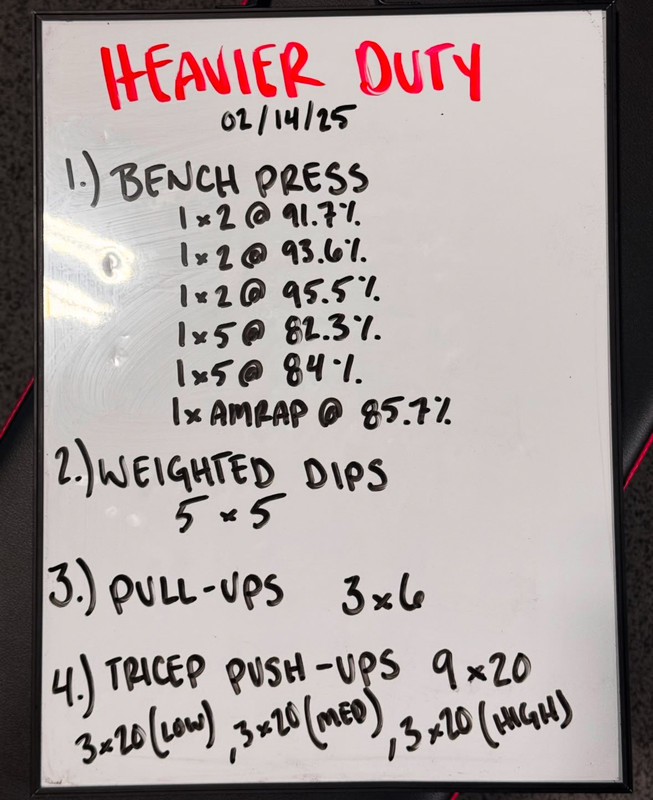 HEAVIER DUTY
02/14/25
1.) BENCH PRESS
1x2 @ 91.7%
1x2 @ 93.6%
1x2 @ 95.5%
1x5 @ 82.3%
1x5 @ 84%
1x AMRAP @ 85.7%
2.) WEIGHTED DIPS
5x5
3.) PULL-UPS 3x6
4.) TRICEP PUSH-UPS 9x20
3x20 (LOW), 3x20 (MED), 3x20 (HIGH)